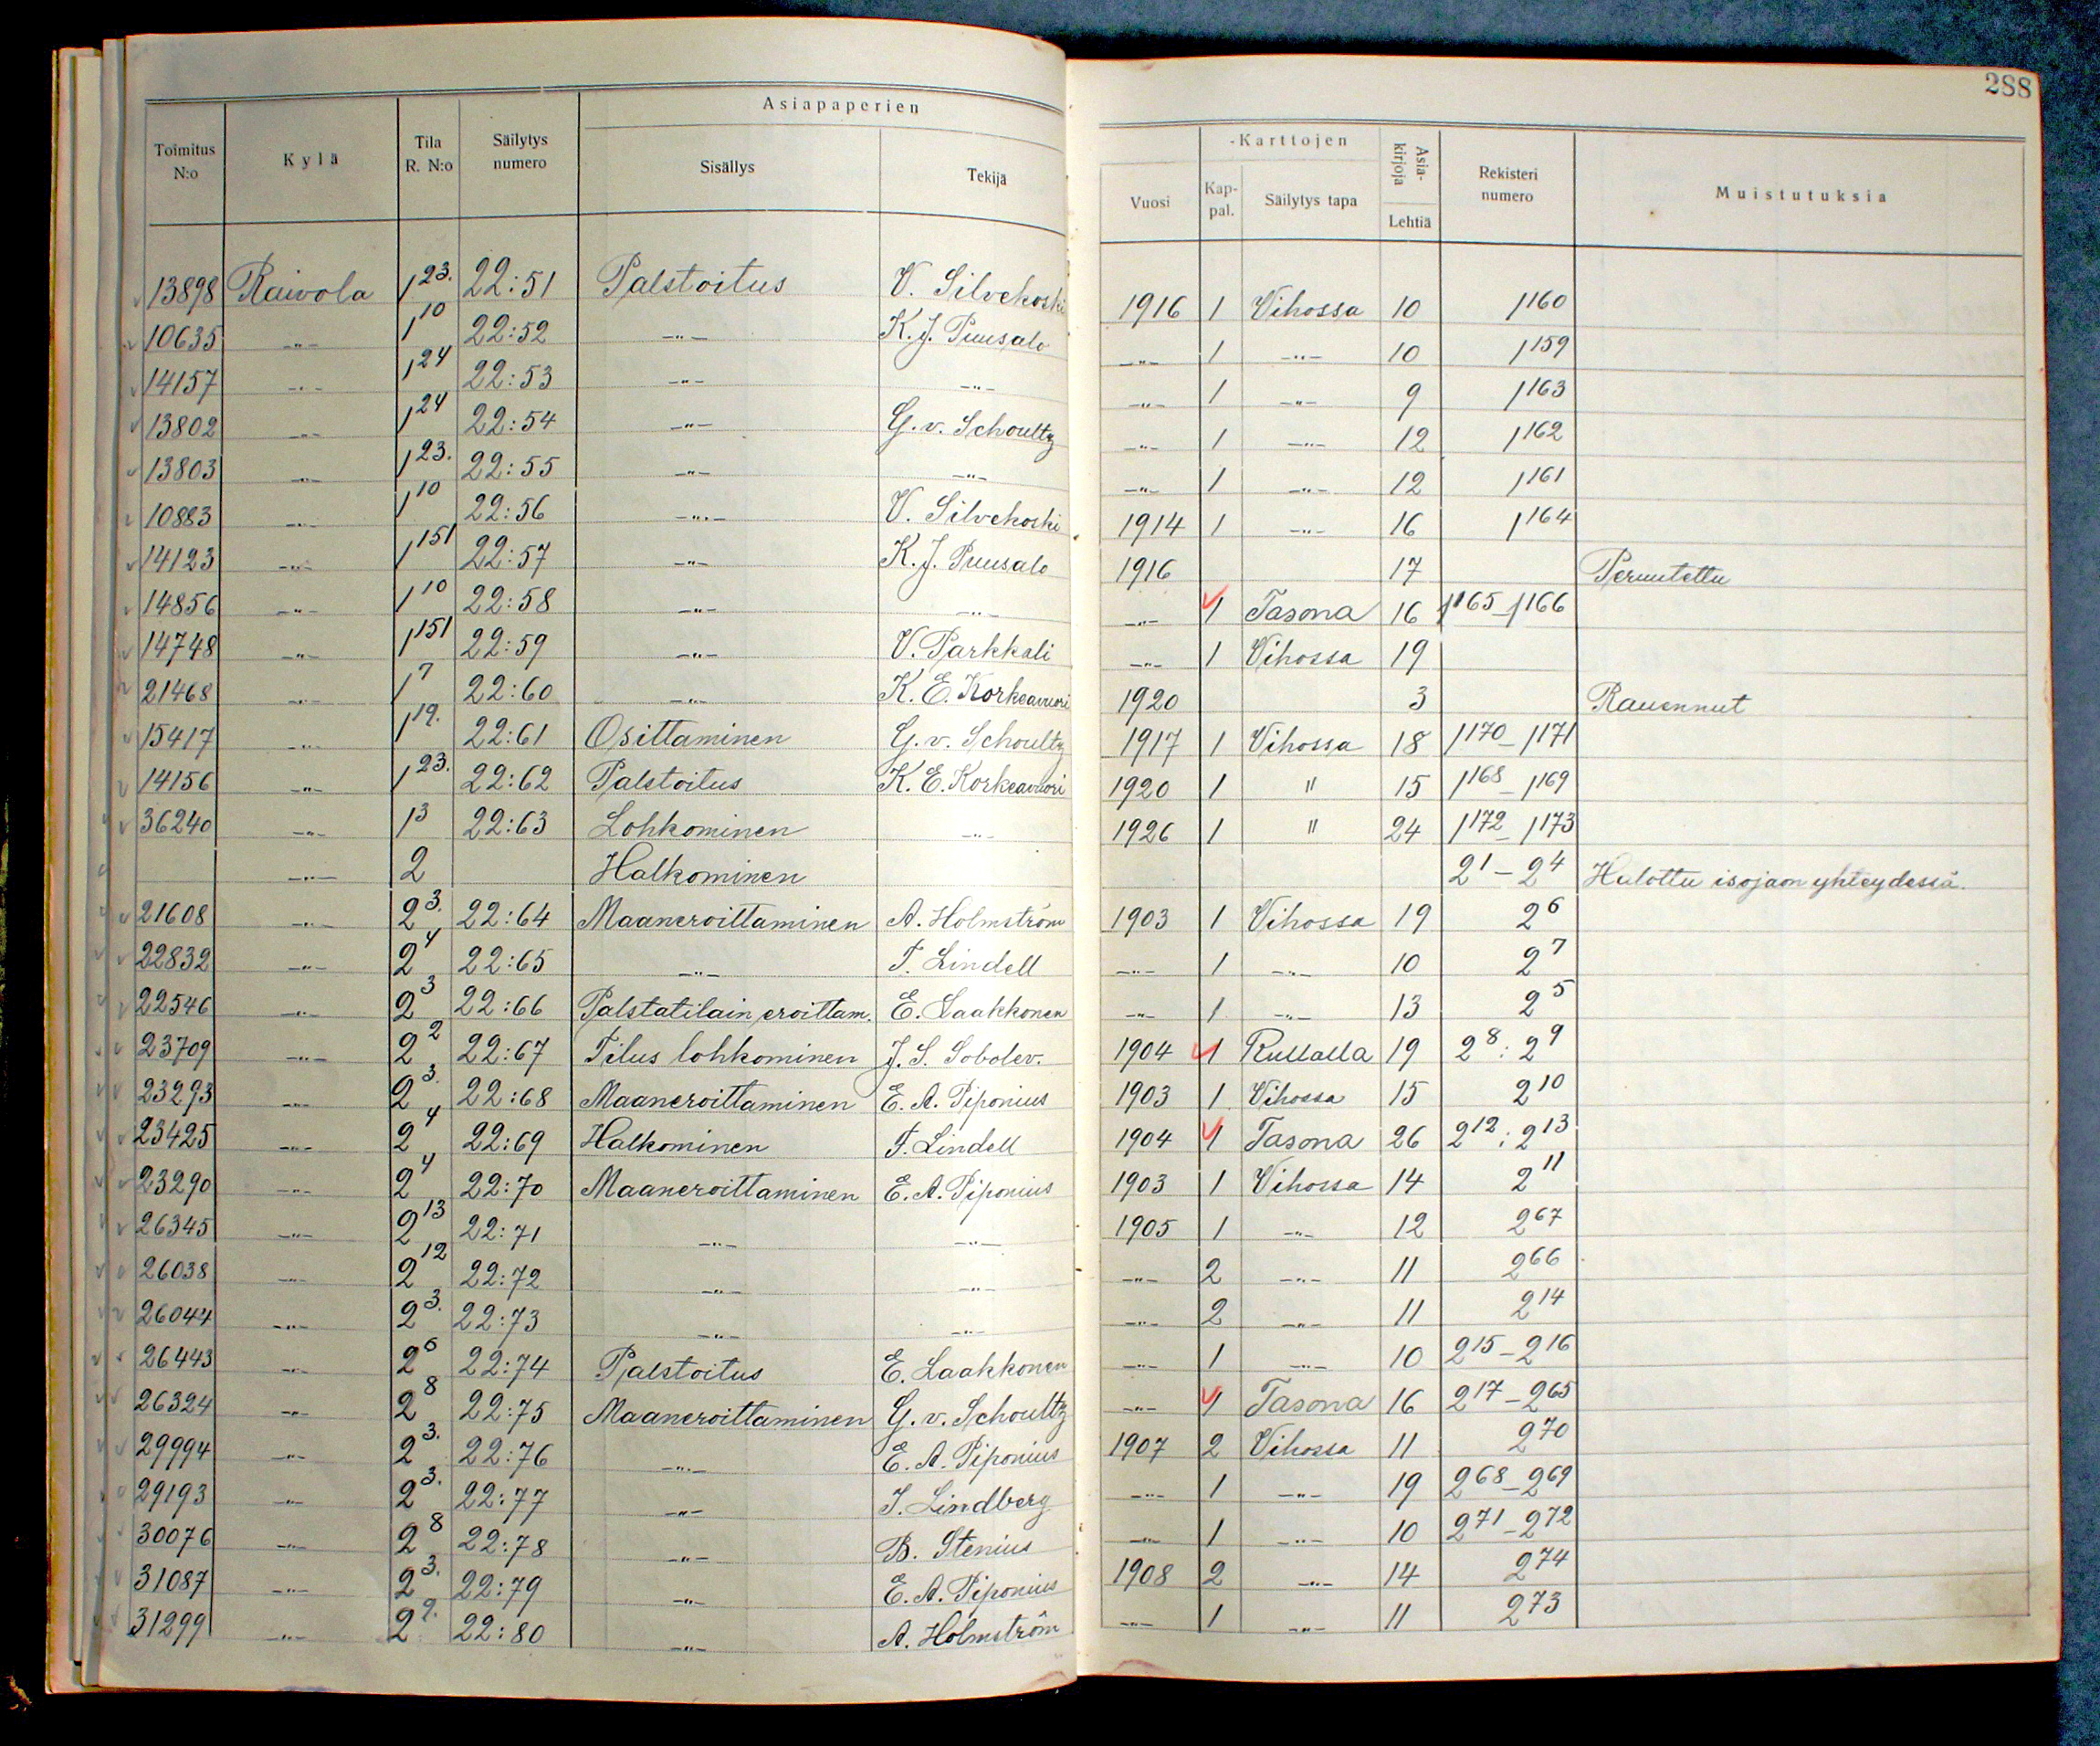 288
Asiapaperien -Karttojen
Toimitus N:o Kylä Tila R. N:o Säilytys numero Sisällys Tekijä Vuosi Kap-pal. Säilytys tapa Asia-kirjoja Lehtiä Rekisteri numero Muistutuksia
13898 Raivola 1²³· 22:51 Palstoitus V. Silvekoski 1916 1 Vihossa 10 1¹⁶⁰
10635 -"- 1¹⁰ 22:52 -"- K. J. Puusalo -"- 1 -"- 10 1¹⁵⁹
14157 -"- 1²⁴ 22:53 -"- -"- -"- 1 -"- 9 1¹⁶³
13802 -"- 1²⁴ 22:54 -"- G. v. Schoultz -"- 1 -"- 12 1¹⁶²
13803 -"- 1²³· 22:55 -"- -"- -"- 1 -"- 12 1¹⁶¹
10883 -"- 1¹⁰ 22:56 -"- V. Silvekoski 1914 1 -"- 16 1¹⁶⁴
14123 -"- 1¹⁵¹ 22:57 -"- K. J. Puusalo 1916 17 Peruutettu
14856 -"- 1¹⁰ 22:58 -"- -"- -"- 1 Tasona 16 1¹⁶⁵-1¹⁶⁶
14748 -"- 1¹⁵¹ 22:59 -"- V. Parkkali -"- 1 Vihossa 19
21468 -"- 1⁷ 22:60 -"- K. E. Korkeavuori 1920 3 Rauennut
15417 -"- 1¹⁹· 22:61 Osittaminen G. v. Schoultz 1917 1 Vihossa 18 1¹⁷⁰-1¹⁷¹
14156 -"- 1²³· 22:62 Palstoitus K. E. Korkeavuori 1920 1 " 15 1¹⁶⁸-1¹⁶⁹
36240 -"- 1³ 22:63 Lohkominen -"- 1926 1 " 24 1¹⁷²-1¹⁷³
-"- 2 Halkominen 2¹-2⁴ Halottu isojaon yhteydessä.
21608 -"- 2³· 22:64 Maaneroittaminen A. Holmström 1903 1 Vihossa 19 2⁶
22832 -"- 2⁴ 22:65 -"- T. Lindell -"- 1 -"- 10 2⁷
22546 -"- 2³ 22:66 Palstatilain eroittam. E. Laakkonen -"- 1 -"- 13 2⁵
23709 -"- 2² 22:67 Tilus lohkominen J. S. Sobolev. 1904 1 Rullalla 19 2⁸: 2⁹
23293 -"- 2³· 22:68 Maaneroittaminen E. A. Piponius 1903 1 Vihossa 15 2¹⁰
23425 -"- 2⁴ 22:69 Halkominen T. Lindell 1904 1 Tasona 26 2¹²: 2¹³
23290 -"- 2⁴ 22:70 Maaneroittaminen E. A. Piponius 1903 1 Vihossa 14 2¹¹
26345 -"- 2¹³ 22:71 -"- -"- 1905 1 -"- 12 2⁶⁷
26038 -"- 2¹² 22:72 -"- -"- -"- 2 -"- 11 2⁶⁶
26044 -"- 2³· 22:73 -"- -"- -"- 2 -"- 11 2¹⁴
26443 -"- 2⁶ 22:74 Palstoitus E. Laakkonen -"- 1 -"- 10 2¹⁵-2¹⁶
26324 -"- 2⁸ 22:75 Maaneroittaminen G. v. Schoultz -"- 1 Tasona 16 2¹⁷-2⁶⁵
29994 -"- 2³· 22:76 -"- E. A. Piponius 1907 2 Vihossa 11 2⁷⁰
29193 -"- 2³· 22:77 -"- J. Lindberg -"- 1 -"- 19 2⁶⁸-2⁶⁹
30076 -"- 2⁸ 22:78 -"- B. Stenius -"- 1 -"- 10 2⁷¹-2⁷²
31087 -"- 2³· 22:79 -"- E. A. Piponius 1908 2 -"- 14 2⁷⁴
31299 -"- 2²· 22:80 -"- A. Holmström -"- 1 -"- 11 2⁷³